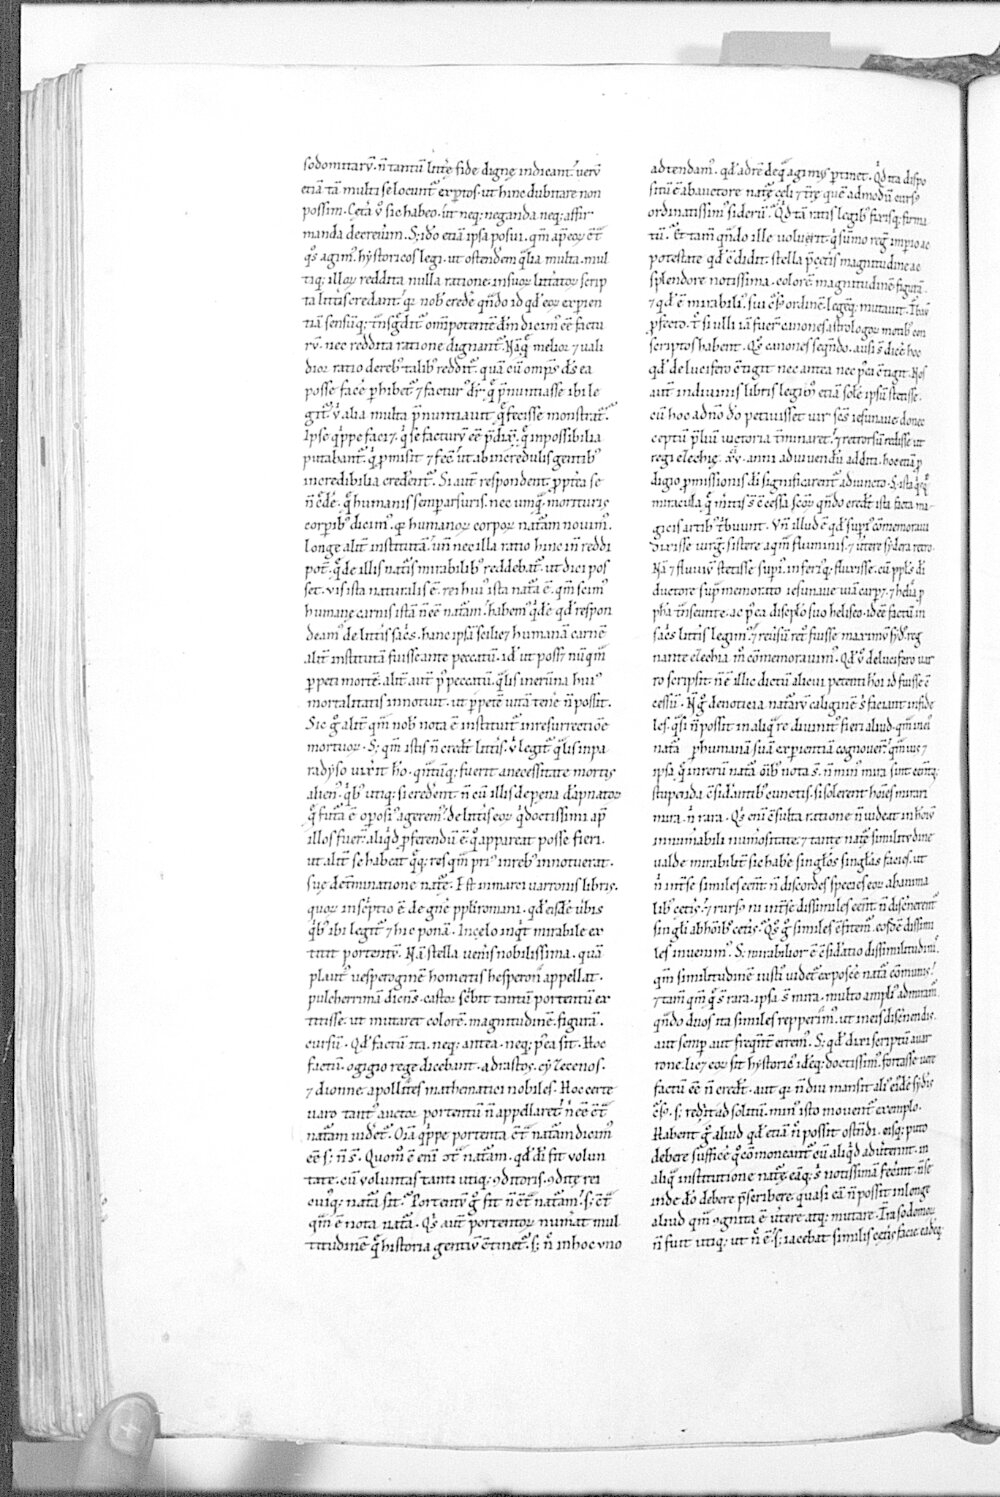 sodomitarũ. ñ tantũ littẹ fide digne indicant. uerũ
etiã tã multi se locunt᷑ exptos. ut hinc dubitare non
possim. Cet̃a ũ sic habeo. ut neq; neganda neq; affir
manda decreuim. S; ido etiã ipsa posui. qm̃ ap eor̃ ẽt
q̃s agim᷒ hystoricos legi. ut ostendem q̃lia multa. mul
tiq; illoꝝ reddita nulla ratione. insuoꝝ litt̃atoꝝ scrip
ta litt̃is credant. qꝛ nob̃ crede q̃ndo id qd̃ eor̃ experien
tiã sensuq; t̃nsg̃dit᷑ om̃ipotentẽ dm̃ dicim᷒ ẽẽ factu
rũ. nec reddita ratione dignant᷑. Nãq; melior ⁊ uali
dior ratio dereb᷒ talib᷒ reddit᷑. quã cũ omps ds̃ ea
posse facẽ phibet᷑ ⁊ factur᷒ dr̃. q̃ p̃nuntiasse ibi le
git᷑. ũ alia multa p̃nuntiauit q̃ fecisse monstrat᷑.
Ipse q̃ppe faciet. q̃ se facturũ ẽẽ p̃dix̃. q̃ inpossibilia
putabant᷑. q̃ p̃misit ⁊ fecit ut ab incredulis gentib᷒
incredibilia credent᷑. Si aut̃ respondent. ppt̃ea se
ñ c̃dẽ. q̃ humanis semp arsuris. nec umq̃. morituris
corpib᷒ dicim᷒. qꝛ humanoꝝ corpoꝝ nat̃am nouim᷒.
longe alit̃ institutã. un̄ nec illa ratio hinc ir̃ reddi
pot̃. q̃ de illis nat̃is mirabilib᷒ reddebat᷑. ut dici pos
set. uis ista naturalis ẽ. rei hui᷒ ista nat̃a ẽ. qm̃ scim᷒
humane carnis istã ñ ẽẽ nat̃am. habem᷒ q̃dẽ qd̃ respon
deam᷒ de litt̃is sac̃s. hanc ipsã scilic⁊ humanã carnẽ
alit̃ institutã fuisse ante peccatũ. id ẽ ut poss⁊ nũq̃m
ppeti mortẽ. alit̃ aut̃ p᷒ peccatũ. q̃lis in erũna hui᷒
mortalitatis innotuit. ut ppetẽ uitã tenẽ ñ possit.
Sic g̃ alit̃ qm̃ nob̃ nota ẽ instituet᷑ inresurrectiõe
mortuoꝝ. S; qm̃ istis ñ credt̃ litt̃is. ũ legit᷑ q̃lis inpa
radyso uixit hõ. q̃ntũq; fuerit anecessitate mortis
alien᷒. q̃b᷒ utiq; si credent ñ cũ illis depena dãpnatoꝝ
q̃ fut̃a ẽ oposi᷒ agerem᷒. de litt̃is eoꝝ q̃ doctissimi ap
illos fuer̃. aliq̃d p̃ferendũ ẽ. q̃ appareat posse fieri.
ut alit̃ se habeat q̃q; res. qm̃ pri᷒ inreb᷒ innotuerat.
sue det̃minatione nat̃e. Est inmarci uarronis libris.
quoꝝ insc̃ptio ẽ de gen̄e ppli romani. qd̃ eisdẽ ũbis
q̃b᷒ ibi legit᷑ ⁊ hic ponã. In celo inq̃t mirabile ex
titit portentũ. Nã stella uen̄is nobilissima. quã
plaut᷒ uesperoginẽ homerus hesperon appellat.
pulcherrimã dicens. castor sc̃bit tantũ portentũ ex
titisse. ut mutaret colorẽ. magnitudinẽ. figurã.
cursũ. Qd̃ factũ ita. neq; antea. neq; p᷒ea sit. Hoc
factũ. ogigio rege dicebant. adrastos. cyzicenos.
⁊ dionne apollites mathematici nobiles. Hoc certe
uaro tant᷒ auctor portentũ ñ appellaret. n̄ ẽẽ ct̃
nat̃am uidet᷑. Oĩa q̃ppe portenta ct̃ nat̃am dicim᷒
ẽẽ s; ñ s̃. Quom̃ ẽ enĩ ct̃ nat̃am. qd̃ dĩ fit uolun
tate. cũ uoluntas tanti utiq; 9ditoris. 9dite rei
cuiq; nat̃a sit. Portentũ g̃ fit ñ ct̃ nat̃am. s; ct̃
qm̃ ẽ nota nat̃a. Q̃s aut̃ portentoꝝ num̃at mul
titudinẽ q̃ historia gentiũ c̃tinet᷑. s; n̄ inhoc uno
adtendam᷒. qd̃ adrẽ deq̃ agim᷒ p̃tinet. Q̃d ita dispo
situ ẽ ab auctore nat̃e celi ⁊ t̃re. quẽ admodũ curs᷒
ordinatissim᷒ siderũ. Q̃d tã ratis legib᷒ fixisq; firma
tũ. Et tam̃ q̃ndo ille uoluerit q̃ sũmo reg̃ imperio ac
potestate qd̃ ẽ didit. stella p̃ cet̃is magnitudine ac
splendore notissima. colorẽ. magnitudinẽ. figurã.
⁊ qd̃ ẽ mirabili᷒. sui c̃s᷒ ordinẽ legẽq; mutauit. T̃bau᷒
pfecto. t̃c si ulli iã fuer̃ canones astrologoꝝ motib᷒ con
scriptos habent. Q̃s canones seq̃ndo. ausi s̃ dicẽ hoc
qd̃ de lucifero c̃tigit nec antea nec p᷒ea c̃tigit. Nos
aut̃ indiuinis libris legim᷒ etiã sole ipsũ stetisse.
cũ hoc adnõ dõ petiuisset uir sc̃s iesu naue donec
ceptũ p̃liũ uictoria t̃minaret᷑. ⁊ retrorsũ redisse ut
regi elechie. xv. anni ad uiuendũ addita. hoc etiã p
digio pmissionis. dĩ significarent᷑ adiuncto. S; ista q̃q;
miracula. q̃ m̃itis s̃ c̃cessa sc̃oꝝ q̃ndo credt̃ ista facta ma
gicis artib᷒ t̃buunt. Vñ illud ẽ qd̃ sup᷒ c̃memoraui
dixisse uirg̃. sistere aq̃m fluminis. ⁊ ũtere sydera retro.
Nã ⁊ fluuiũ stetisse sup᷒. inferi᷒q; fluxisse. cũ ppls dĩ
ductore sup᷒ memorato iesu naue uiã carp⁊. ⁊ helia p
pha t̃nseunte. ac p᷒ea disciplo suo heliseo. idẽ ẽ factũ in
sac̃s litt̃is legim᷒. ⁊ reũsũ ret᷒ fuisse maximũ syd᷒. reg
nante elechia m̃ c̃memorauim᷒. Qd̃ ũ de lucifero uar
ro scripsit. ñ ẽ illic dictũ alicui petenti hõi id fuisse c̃
cessũ. Ñ g̃ denoticia nat̃arũ caliginẽ s̃ faciant infide
les. q̃si ñ possit in aliq̃ re diuinit᷒ fieri aliud. qm̃ in ei᷒
nat̃a p humanã suã experientiã cognouer̃. q̃mũis ⁊
ipsa. q̃ inrerũ nat̃a oĩb᷒ nota s̃. ñ min᷒ mira sint eent̃q;
stupenda c̃sid̃antib᷒ cunctis. si solerent hoĩes mirari
mira. n̄ rara. Q̃s enĩ c̃sulta ratione ñ uideat in hoĩm
innumabili num̃ositate. ⁊ tanta nat̃e similitudine
ualde mirabilit̃ sic habẽ singlos singlas facies. ut
n̄ int̃se similes eent̃. ñ discordes species eoꝝ abanima
lib᷒ cet̃is. ⁊ rurs᷒ ni int̃se dissimiles eent̃. ñ disc̃nerent᷑
singli abhoĩb᷒ cet̃is. Q̃s g̃ similes ẽẽ fitem᷒. eosdẽ dissimi
les inuenim᷒. S; mirabilior ẽ c̃sid̃atio dissimilitudinũ.
qm̃ similitudinẽ iusti᷒ uidet᷑ exposcẽ nat̃a c̃munis.
⁊ tam̃ qm̃ q̃ s̃ rara. ipsa s̃ mira. multo ampli᷒ admiram᷒.
q̃ndo duos ita similes repperim᷒. ut in eis disc̃nendis.
aut semp aut freq̃nt̃ errem᷒. S; qd̃ dixi scriptũ auar
rone. lic⁊ eoꝝ sit hystoric᷒ idẽq; doctissim᷒. fortasse ueri
factũ ẽẽ ñ credt̃. aut qꝛ ñ diu mansit ali᷒ ei᷒dẽ syd̃is
c̃s᷒. s; redit̃ ad solitũ. min᷒ isto mouent᷑ exemplo.
Habent g̃ aliud qd̃ etiã n̄c possit ostẽdi. eisq; puto
debere sufficẽ q̃ c̃moneant᷑ cũ aliq̃d aduterint in
aliq̃ institutione nat̃e. eãq; s̃ notissimã fec̃int. ñ se
inde dõ debere p̃scribere. quasi eã ñ possit in longe
aliud qm̃ 9gnita ẽ ũtere atq; mutare. T̃ra sodomoꝝ
ñ fuit utiq; ut n̄c ẽ. s; iacebat simili cet̃is facie. eadẽq;